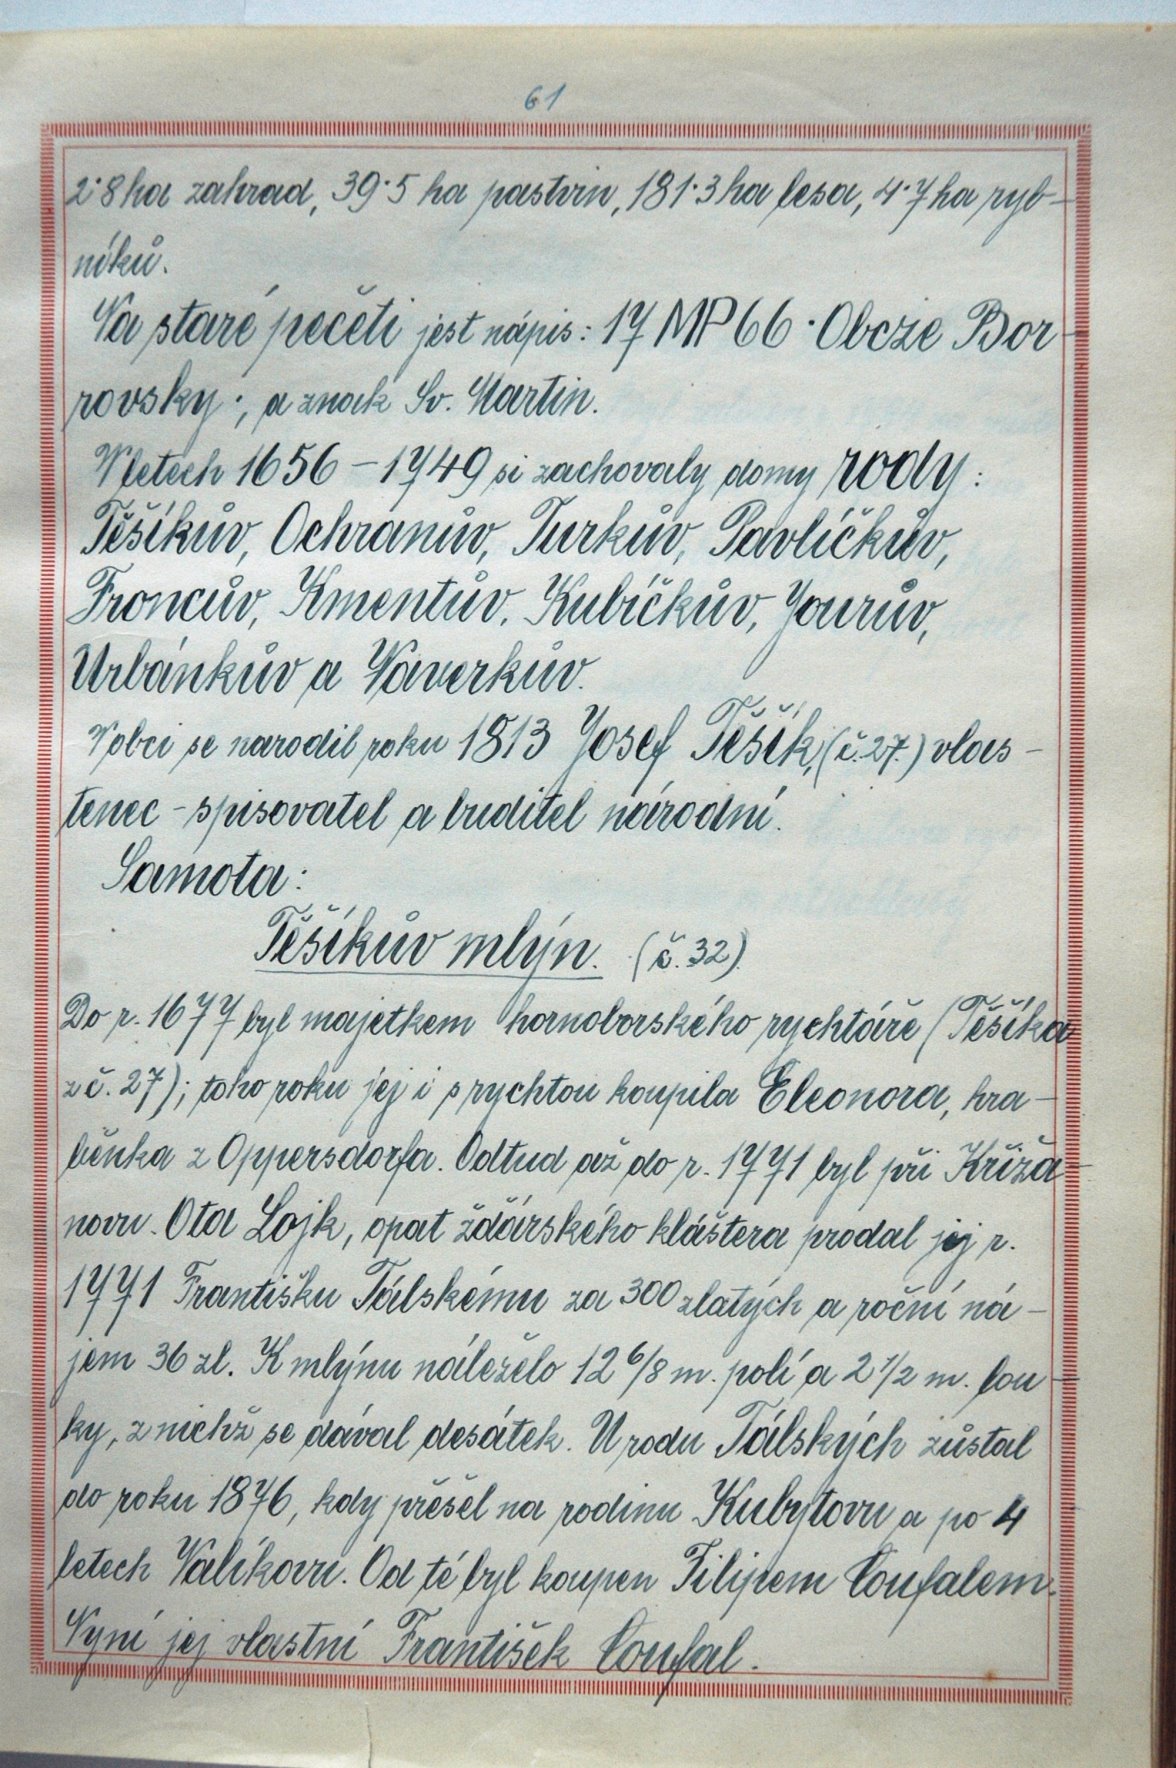 61
2·8 ha zahrad, 39·5 ha pastvin, 181·3 ha lesa, 4·7 ha ryb-
níků.
Na staré pečeti jest nápis: 17 MP 66 · Obcze Bor-
rovsky ·, a znak Sv. Martin.
V letech 1656 – 1749 si zachovaly domy rody:
Těšíkův, Ochranův, Turkův, Pavlíčkův,
Froncův, Kmentův, Kubíčkův, Jourův,
Urbánkův a Vaverkův.
V obci se narodil roku 1813 Josef Těšík, (č. 27.) vlas-
tenec - spisovatel a buditel národní.
Samota:
Těšíkův mlýn. (č. 32).
Do r. 1677 byl majetkem hornoborského rychtáře (Těšíka
z č. 27); toho roku jej i s rychtou koupila Eleonora, hra-
běnka z Oppersdorfa. Odtud až do r. 1771 byl při Křiža-
novu. Ota Lojk, opat žďárského kláštera prodal jej r.
1771 Františku Tálskému za 300 zlatých a roční ná-
jem 36 zl. K mlýnu náleželo 12 6/8 m. polí a 2 1/2 m. lou-
ky, z nichž se dával desátek. U rodu Tálských zůstal
do roku 1876, kdy přešel na rodinu Kubytovu a po 4
letech Valíkovu. Od té byl koupen Filipem Coufalem.
Nyní jej vlastní František Coufal.